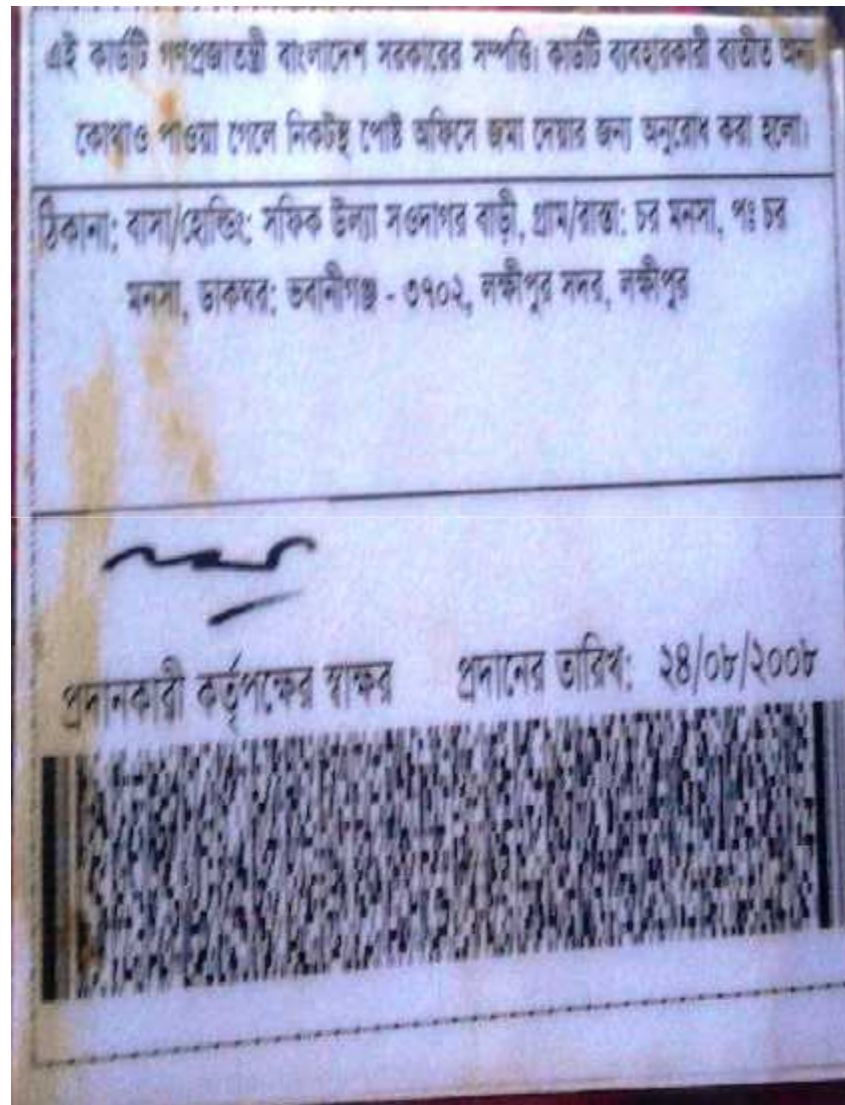 এই কার্ডটি গণপ্রজাতন্ত্রী বাংলাদেশ সরকারের সম্পত্তি। কার্ডটি ব্যবহারকারী ব্যতীত অন্য
কোথাও পাওয়া গেলে নিকটস্থ পোষ্ট অফিসে জমা দেয়ার জন্য অনুরোধ করা হলো।
ঠিকানা: বাসা/হোল্ডিং: সফিক উল্যা সওদাগর বাড়ী, গ্রাম/রাস্তা: চর মনসা, পঃ চর
মনসা, ডাকঘর: ভবানীগঞ্জ - ৩৭০২, লক্ষীপুর সদর, লক্ষীপুর
প্রদানকারী কর্তৃপক্ষের স্বাক্ষর প্রদানের তারিখ: ২৪/০৮/২০০৮